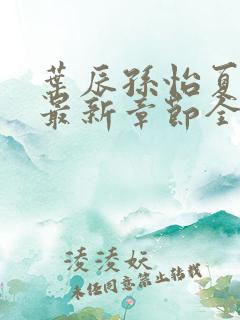 叶辰孙怡夏
最新章节全
淩淩妖
未经同意禁止转载